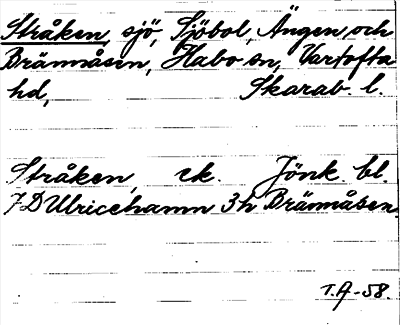 Stråken, sjö, Sjöbol, Ängen, och
Brännåsen, Habo sn, Vartofta
hd, Skarab. l.
Stråken, ek. Jönk. bl.
7D Ulricehamn 3h Brännåsen.
T.A-58.